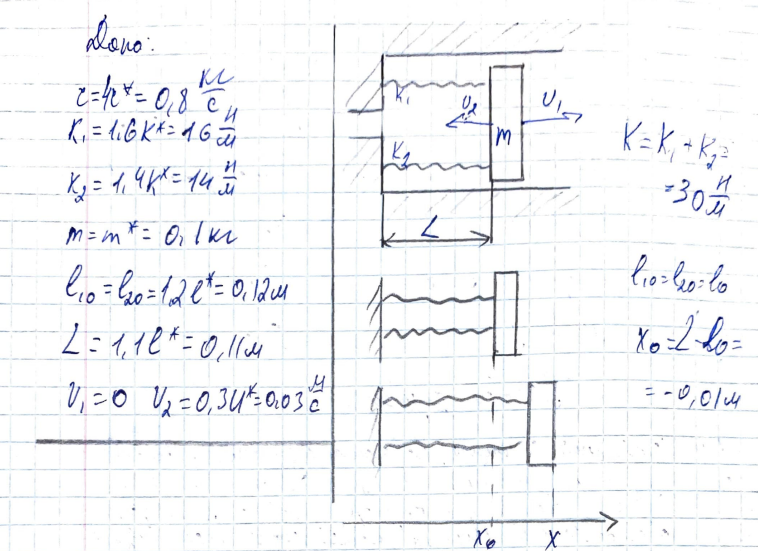 Дано:
r=4r*=0,8 кг/с
K₁=1,6K*=16 н/м
K₂=1,4K*=14 н/м
m=m*=0,1кг
l₁₀=l₂₀=1,2l*=0,12м
L=1,1l*=0,11м
U₁=0 U₂=0,3U*=0,03 м/с
K₁
U₂
U₁
m
K₂
L
X₀
X
K=K₁+K₂=
=30 н/м
l₁₀=l₂₀=l₀
X₀=L-l₀=
=-0,01м